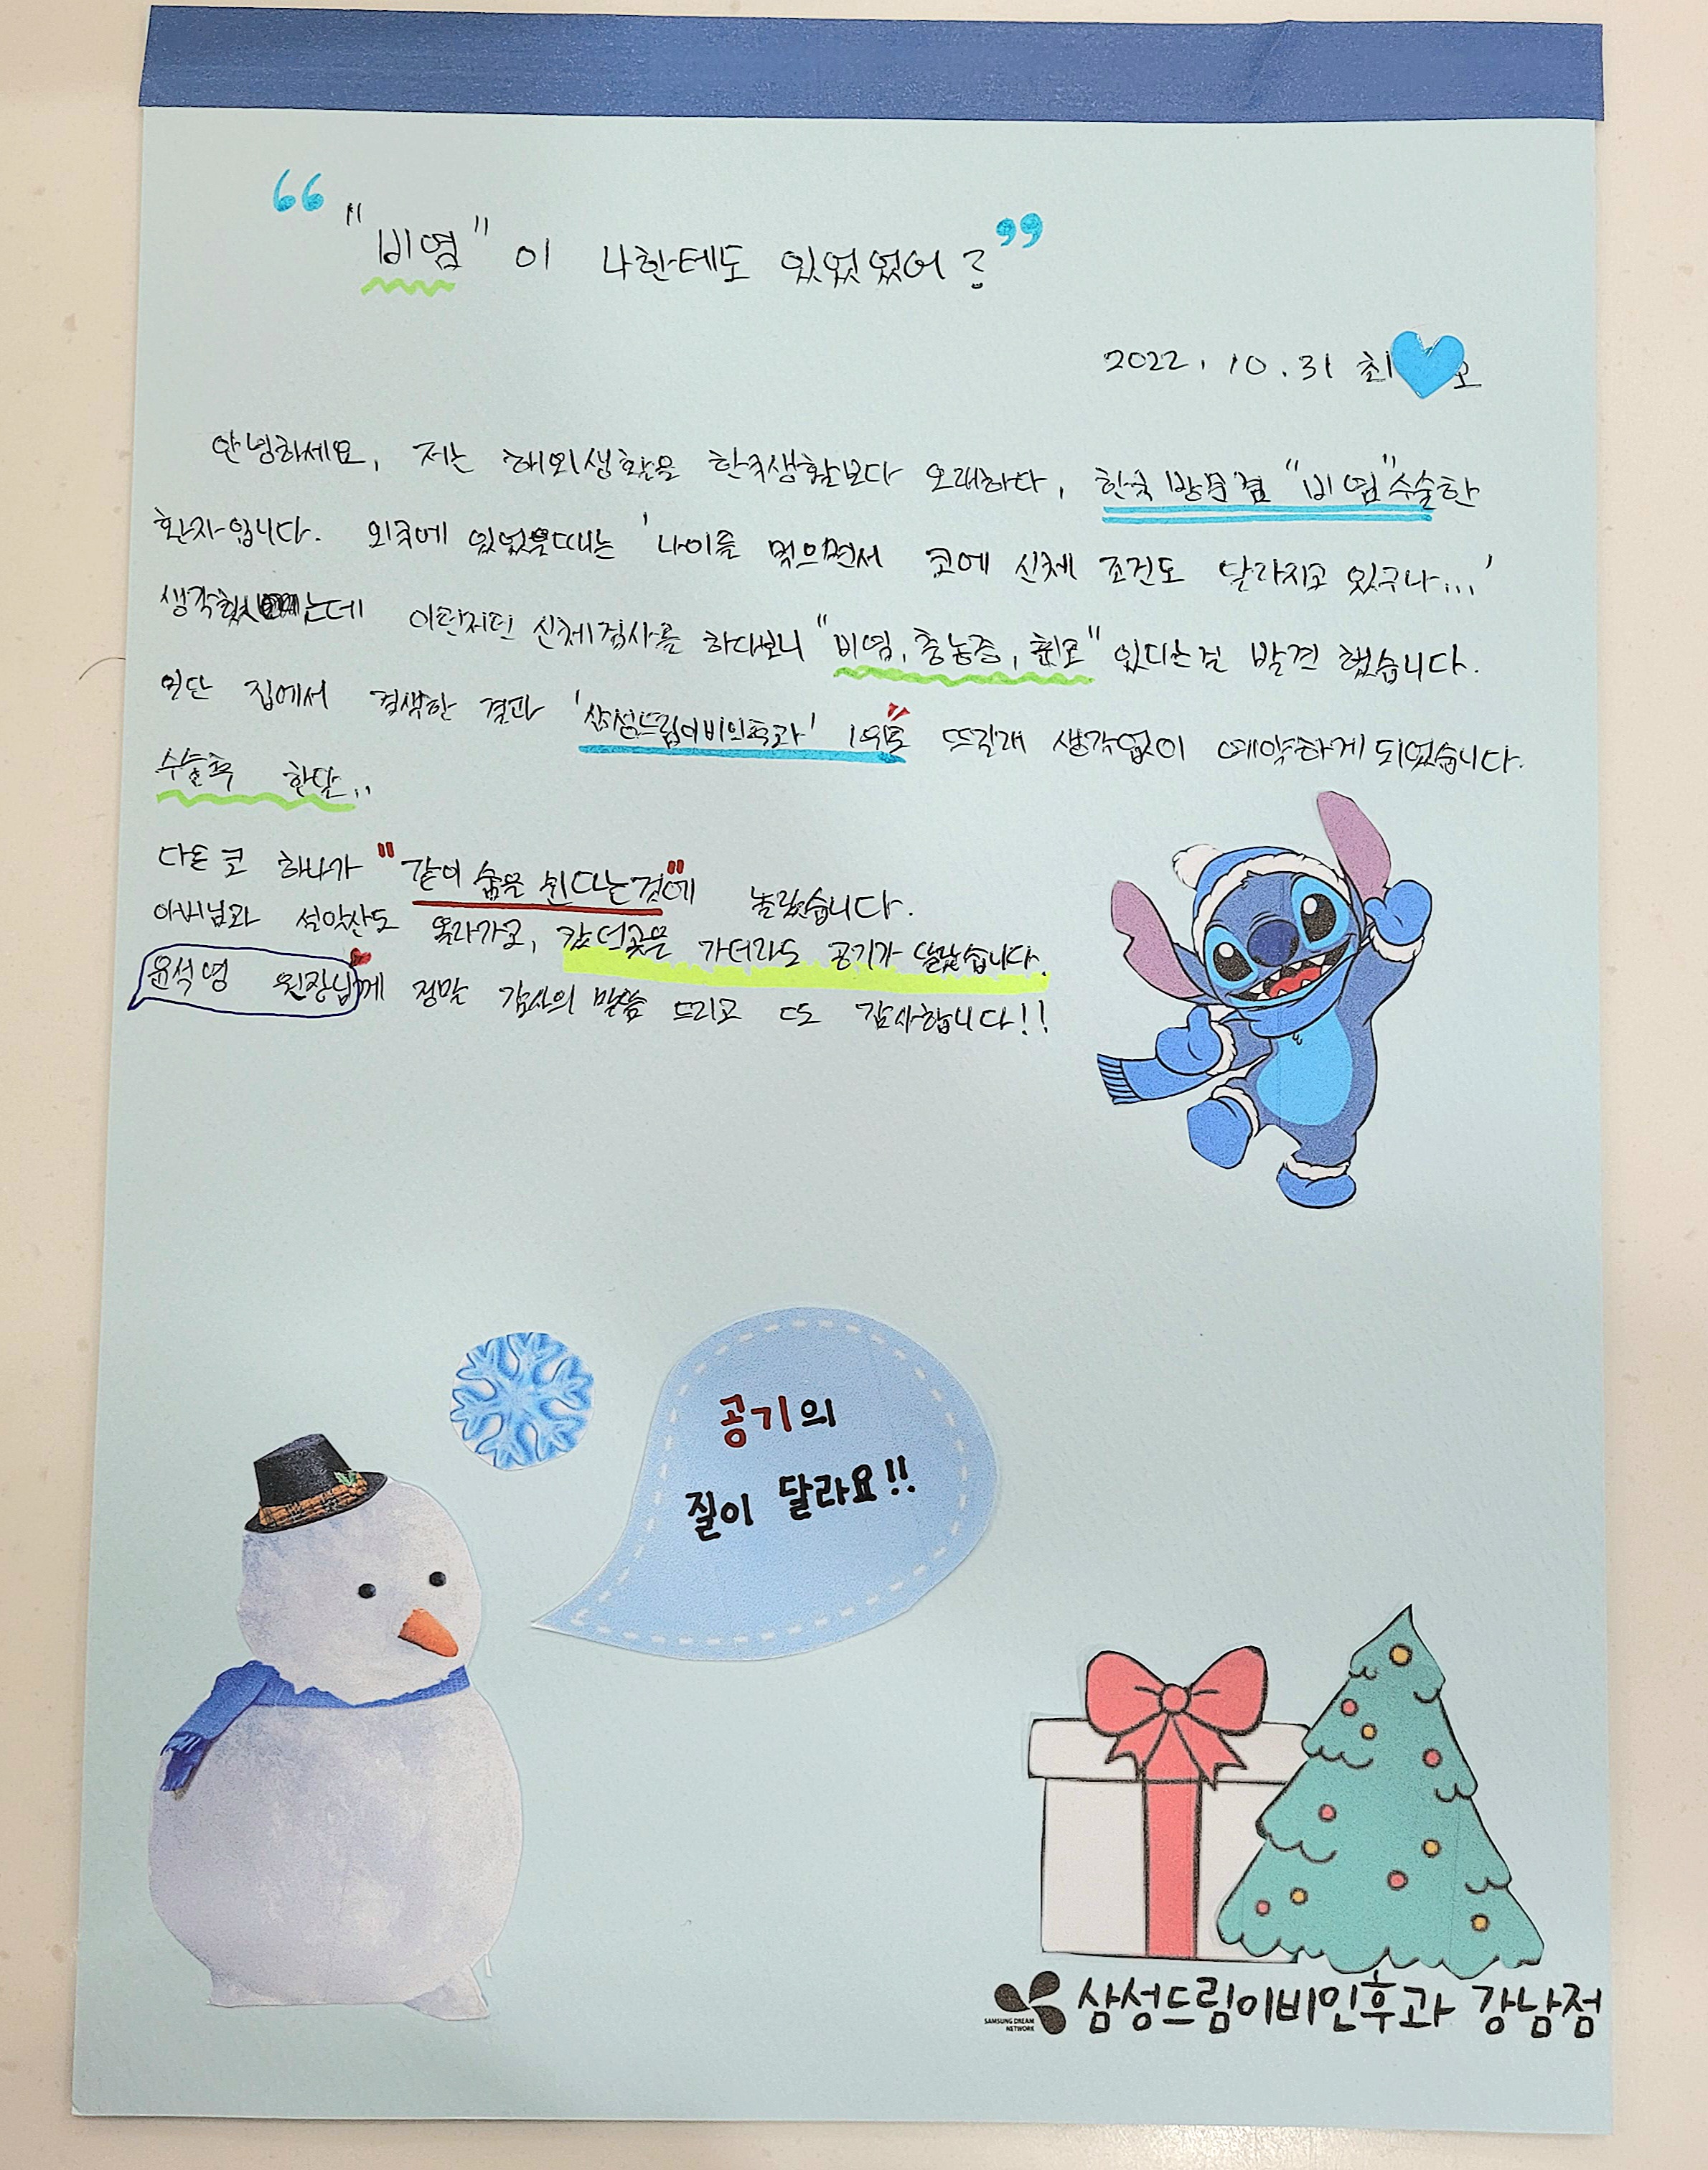 “ "비염" 이 나한테도 있었었어? ”
2022. 10. 31 최 오
안녕하세요, 저는 해외생활을 한국생활보다 오래하다, 한국 방문겸 "비염" 수술한
환자입니다. 외국에 있었을때는 '나이를 먹으면서 코에 신체 조건도 달라지고 있구나...'
생각했는데 이런저런 신체검사를 하다보니 "비염, 충농증, 휜코" 있다는걸 발견 했습니다.
일단 집에서 검색한 결과 '삼성드림이비인후과' 1위로 뜨길래 생각없이 예약하게 되었습니다.
수술후 한달..
다른 코 하나가 "같이 숨을 쉰다는것"에 놀랐습니다.
아버님과 설악산도 올라가고, 갔던곳을 가더라도 공기가 달랐습니다.
윤석영 원장님께 정말 감사의 말씀 드리고 또 감사합니다!!
공기의
질이 달라요!!
삼성드림이비인후과 강남점
SAMSUNG DREAM
NETWORK